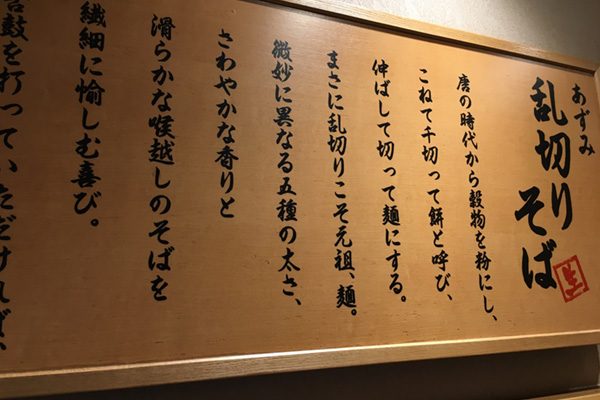 あずみ
乱切りそば
生
唐の時代から穀物を粉にし、
こねて千切って餅と呼び、
伸ばして切って麺にする。
まさに乱切りこそ元祖、麺。
微妙に異なる五種の太さ、
さわやかな香りと
滑らかな喉越しのそばを
繊細に愉しむ喜び。
舌鼓を打っていただければ、